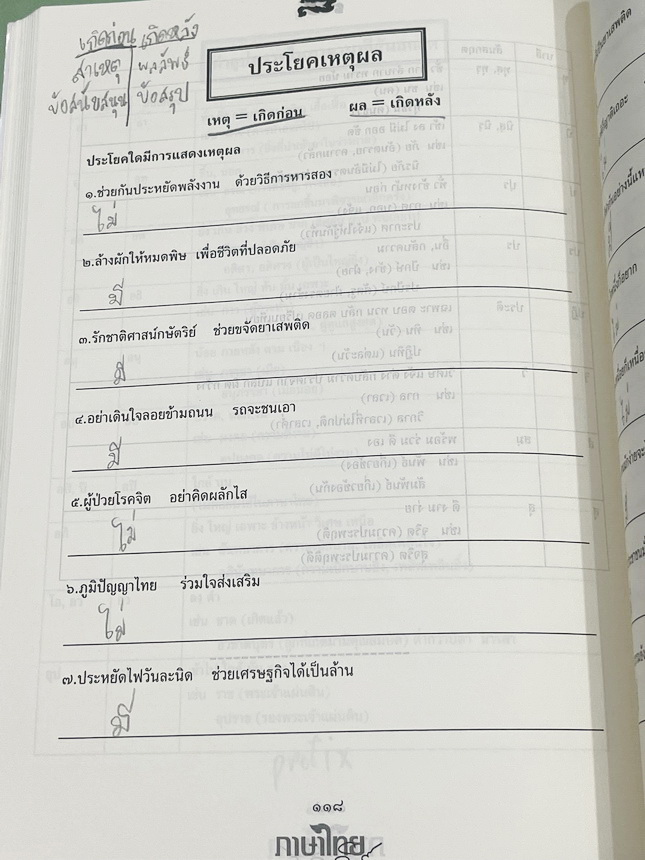 เกิดก่อน เกิดหลัง
สาเหตุ ผลลัพธ์
ข้อสนับสนุน ข้อสรุป
ประโยคเหตุผล
เหตุ = เกิดก่อน ผล = เกิดหลัง
ประโยคใดมีการแสดงเหตุผล
๑.ช่วยกันประหยัดพลังงาน ด้วยวิธีการหารสอง
ไม่
๒.ล้างผักให้หมดพิษ เพื่อชีวิตที่ปลอดภัย
มี
๓.รักชาติศาสน์กษัตริย์ ช่วยขจัดยาเสพติด
มี
๔.อย่าเดินใจลอยข้ามถนน รถจะชนเอา
มี
๕.ผู้ป่วยโรคจิต อย่าคิดผลักไส
ไม่
๖.ภูมิปัญญาไทย ร่วมใจส่งเสริม
ไม่
๗.ประหยัดไฟวันละนิด ช่วยเศรษฐกิจได้เป็นล้าน
มี
๑๑๘
ภาษาไทย